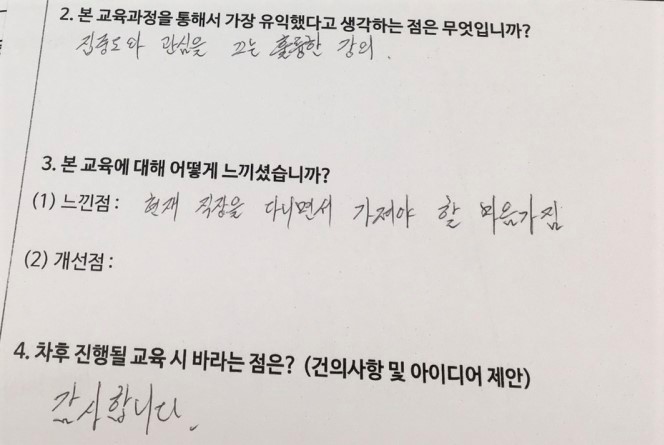 2. 본 교육과정을 통해서 가장 유익했다고 생각하는 점은 무엇입니까?
집중도와 관심을 끄는 훌륭한 강의.
3. 본 교육에 대해 어떻게 느끼셨습니까?
(1) 느낀점 : 현재 직장을 다니면서 가져야 할 마음가짐
(2) 개선점 :
4. 차후 진행될 교육 시 바라는 점은? (건의사항 및 아이디어 제안)
감사합니다.